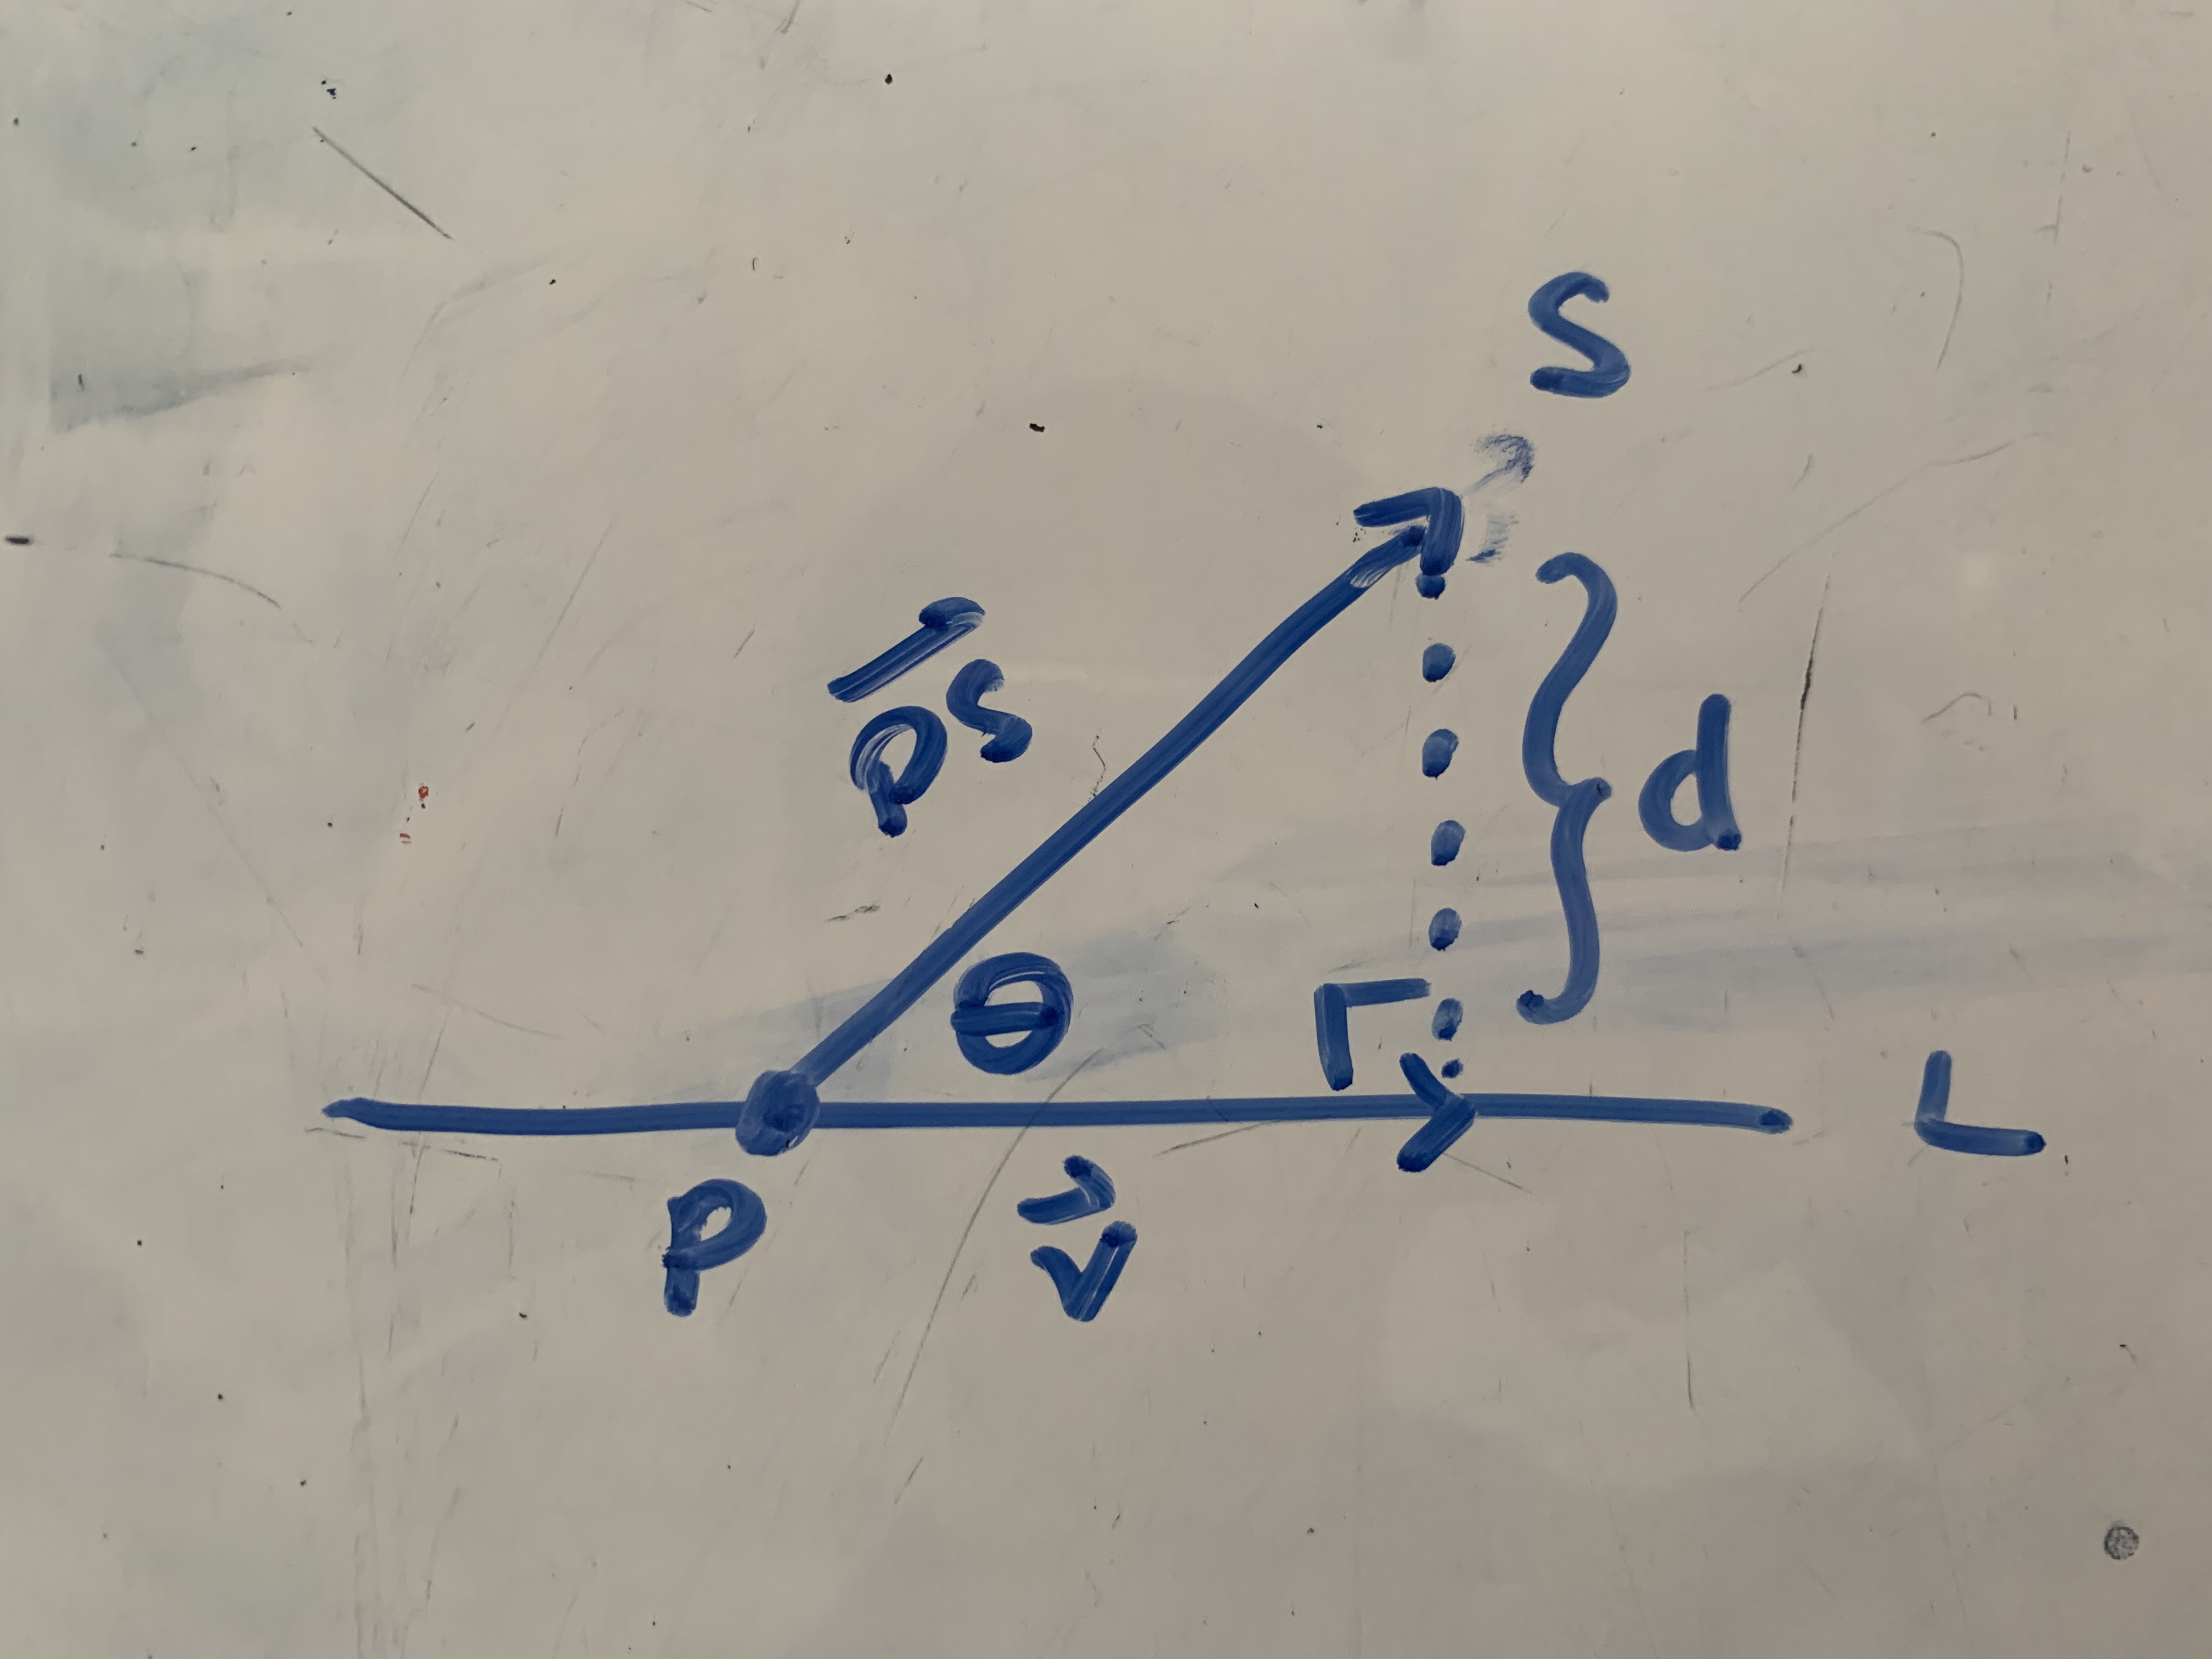 S
PS
d
θ
L
P
v